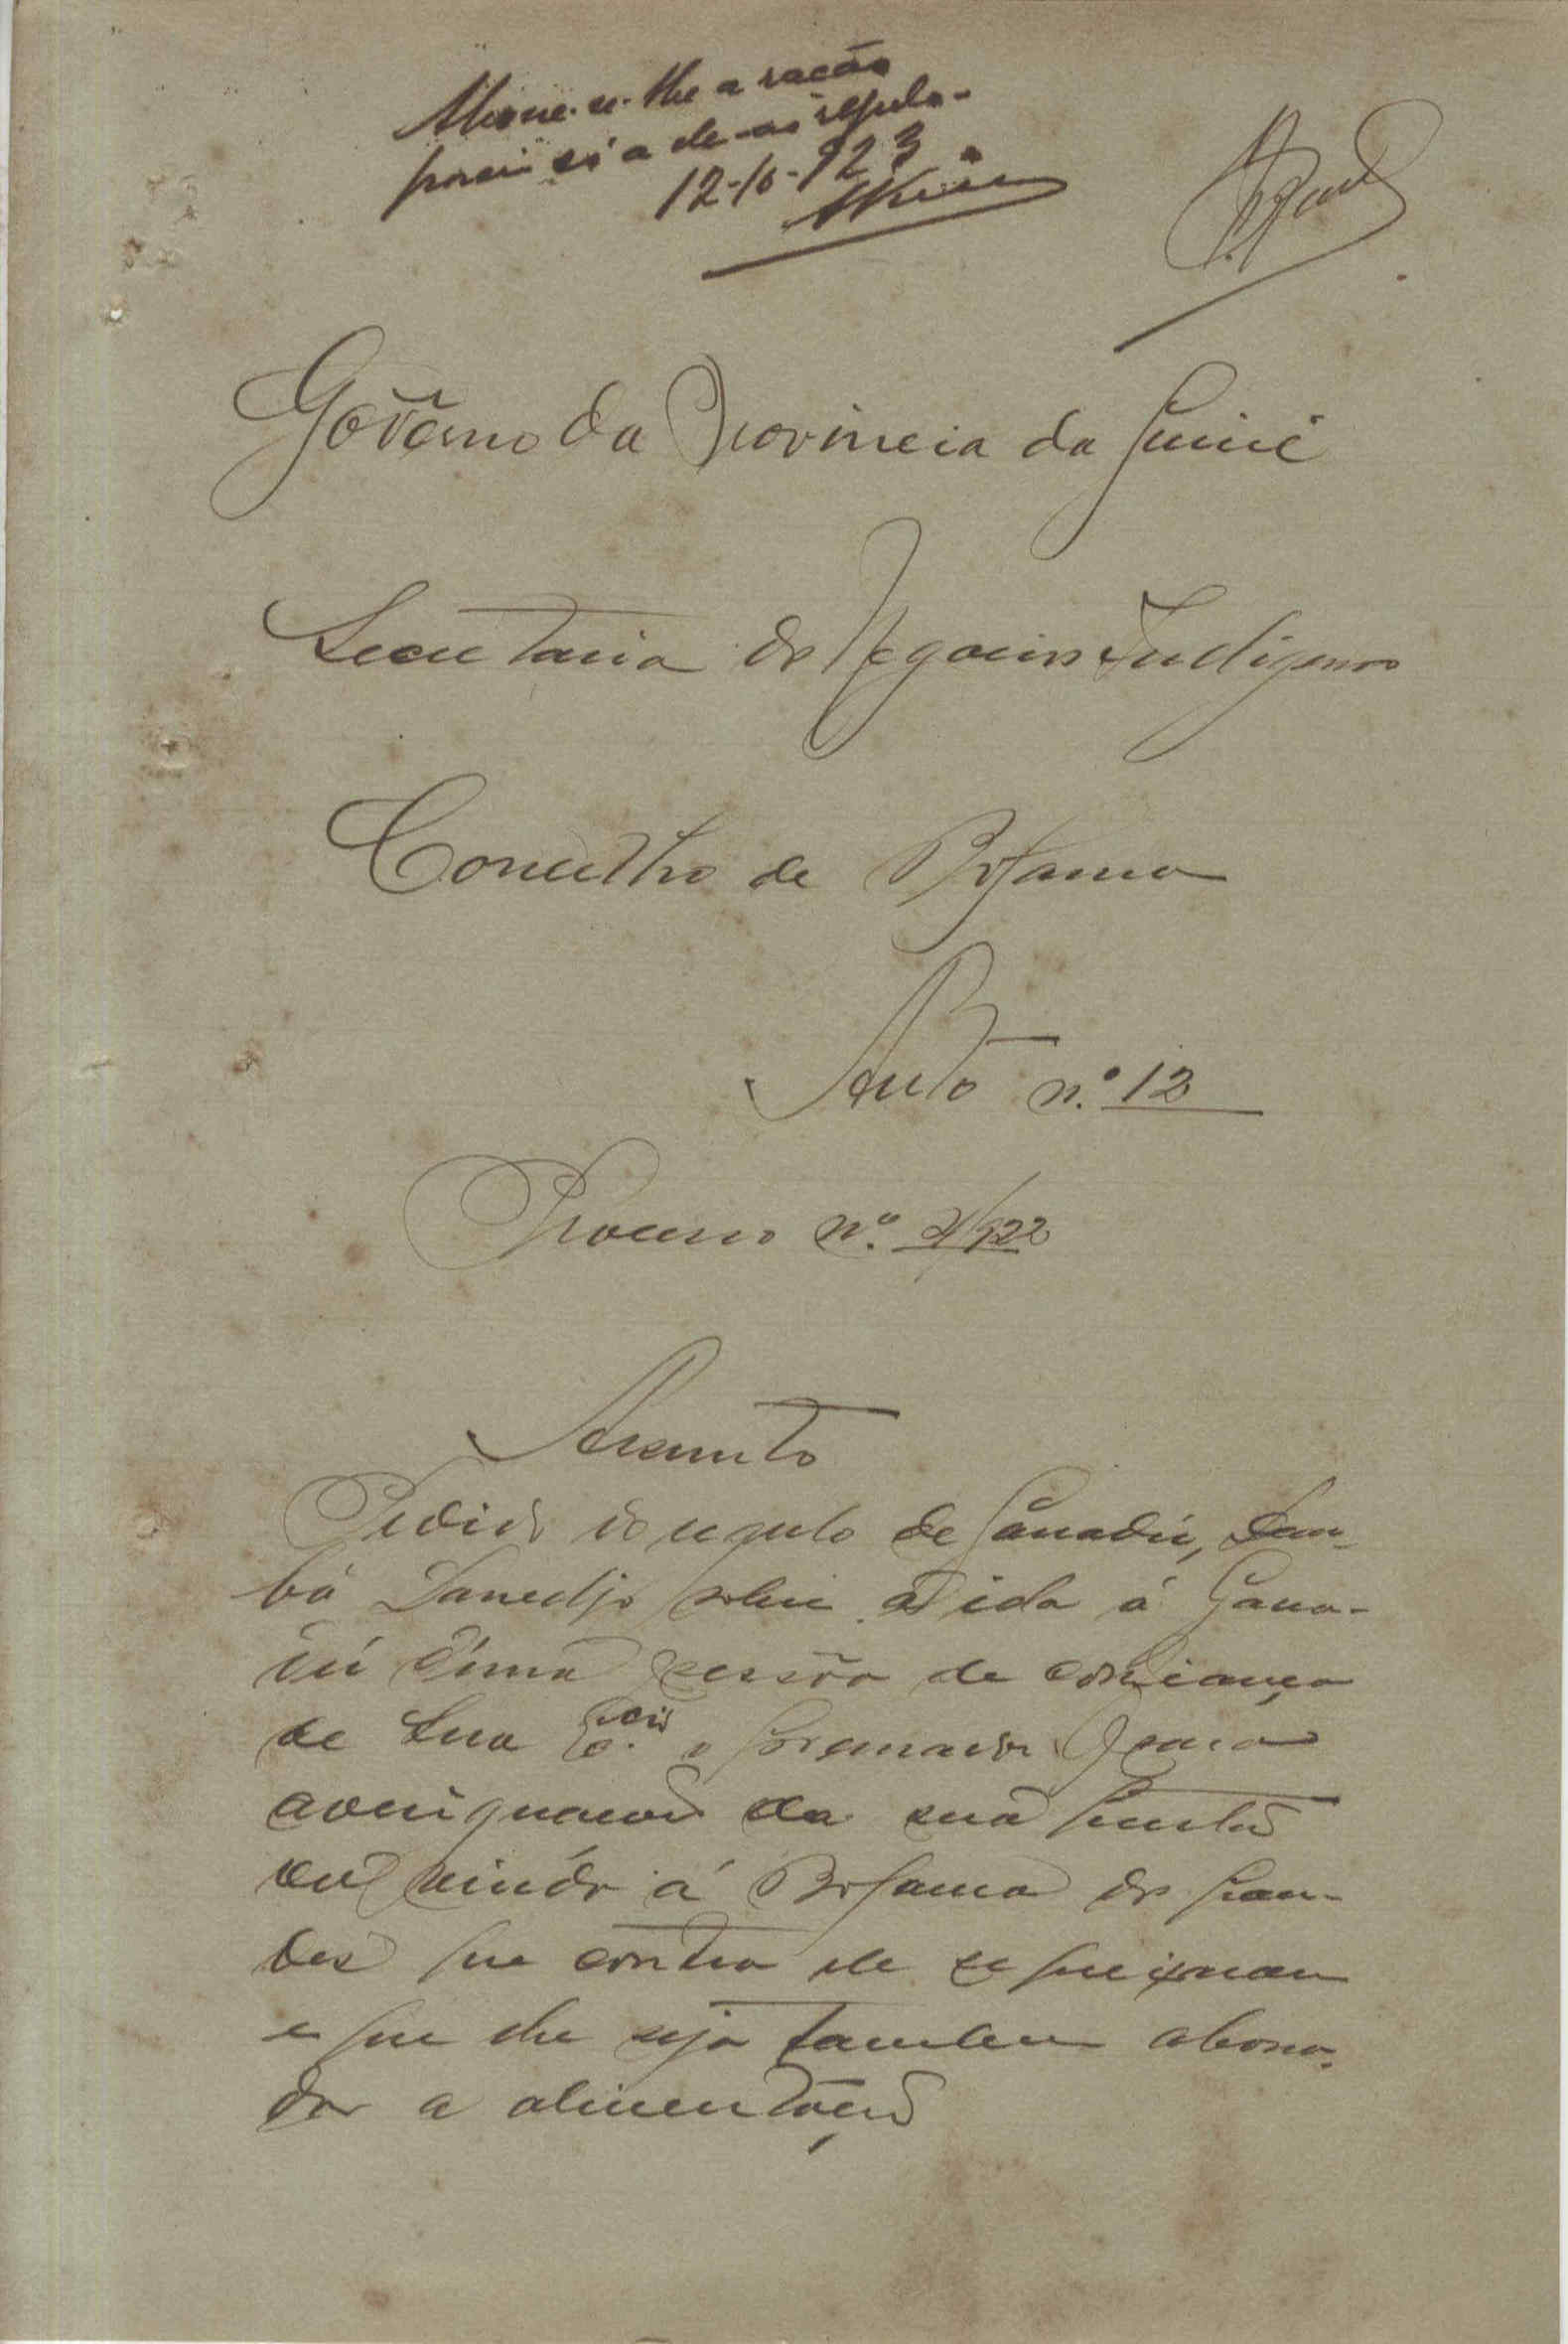 Abone-se-lhe a ração
porem só a dê-as regulo-
12-10-923
Govêrno da Provincia da Guiné
Secretaria dos Negocios Indigenas
Concelho de Bolama
Auto n.º 12
Processo nº. 2/922
Assunto
Pedido do regulo de Canadú, Dem-
bá Danedjo sobre a ida á Cana-
dú duma pessôa de confiança
de Sua Ex.cia o Governador para
averiguação da sua gestão
e vinda á Bolama dos gran-
des que contra ele se queixam
e que lhe seja tambem abona-
da a alimentação